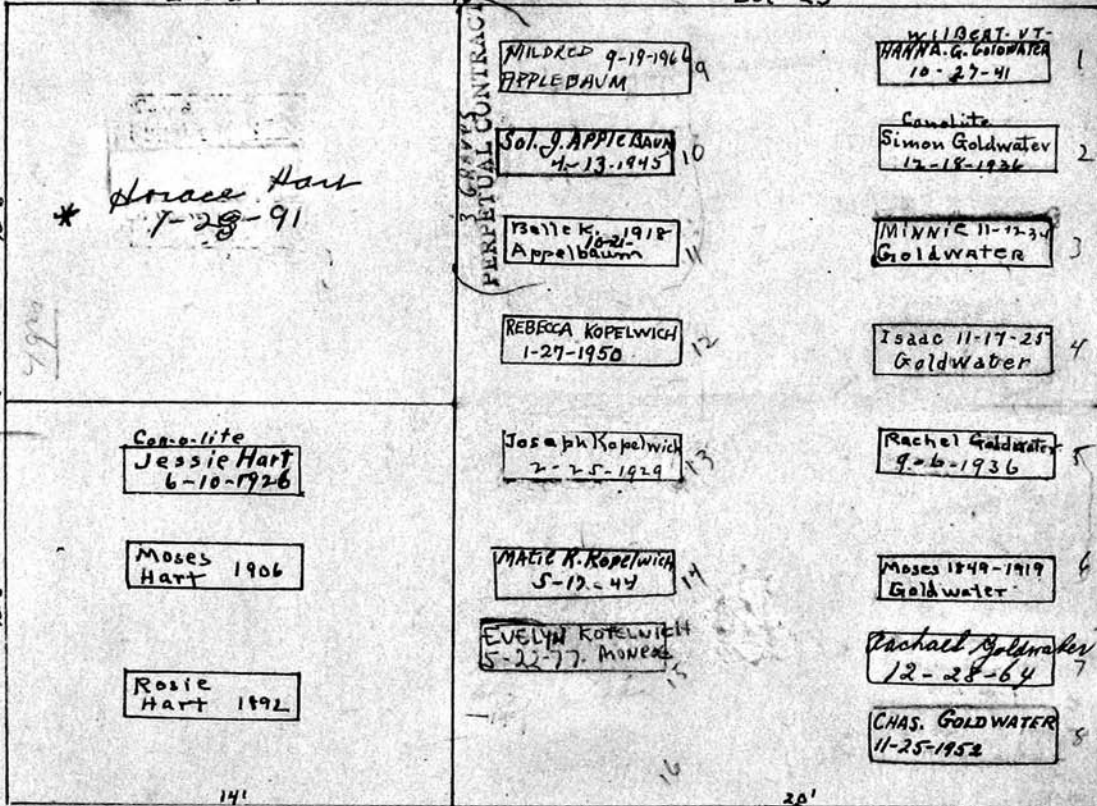 *
Horace Hart
1-28-91
Con-o-lite
Jessie Hart
6-10-1926
Moses
Hart 1906
Rosie
Hart 1892
14'
3 GRAVES
PERPETUAL CONTRACT
MILDRED 9-19-1966
APPLEBAUM
9
Sol. J. APPLEBAUM
4-13-1945
10
Belle K. 1918
10-21-
Appelbaum
11
REBECCA KOPELWICH
1-27-1950
12
Joseph Kopelwich
2-25-1929
13
MATIE R. Kopelwich
5-12-44
14
EVELYN KOPELWICH
5-22-77. MONROE
15
16
WILBERT-VT-
HANNA. G. GOLDWATER
10-27-41
1
Conolite
Simon Goldwater
12-18-1936
2
MINNIE 11-12-34
GOLDWATER
3
Isaac 11-17-25
Goldwater
4
Rachel Goldwater
9-6-1936
5
Moses 1849-1919
Goldwater
6
Rachael Goldwater
12-28-64
7
CHAS. GOLDWATER
11-25-1952
8
20'